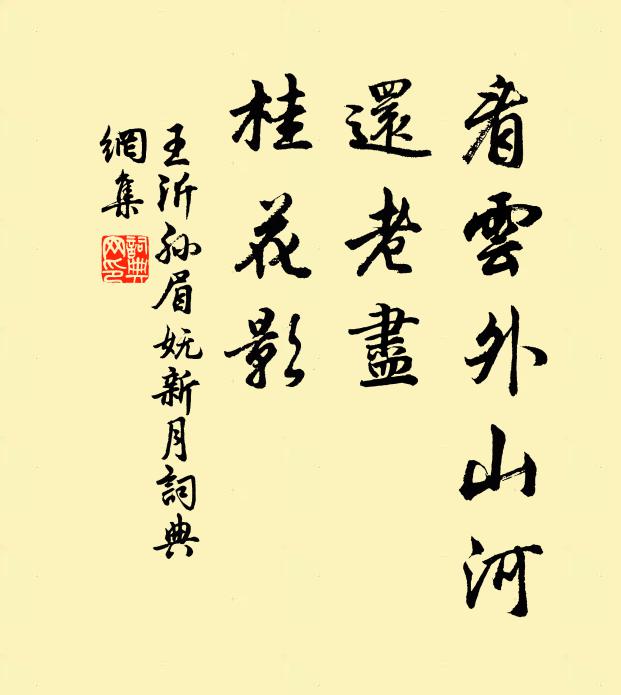 看雲外山河
還老盡
桂花影
王沂孫眉嫵新月詞典
網集
詞典
网印